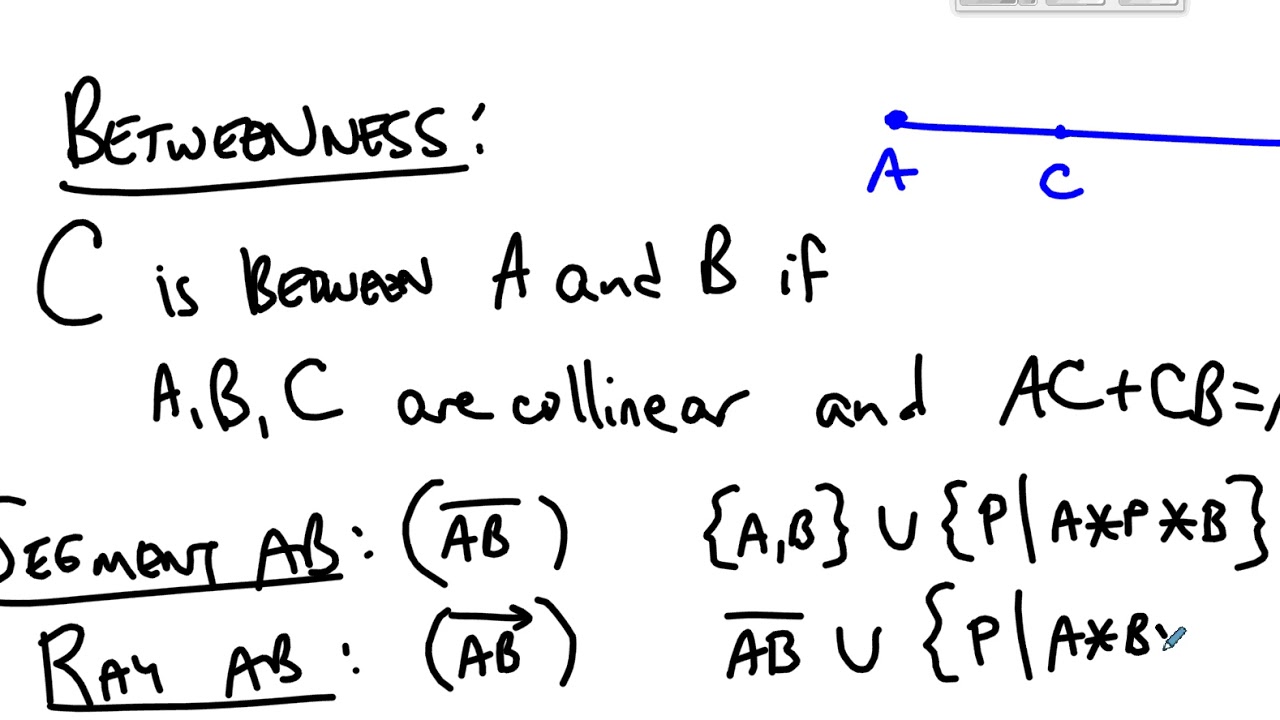 BETWEENNESS:
A
C
C is BETWEEN A and B if
A, B, C are collinear and AC+CB=
SEGMENT AB: (\overline{AB}) {A,B} ∪ {P|A*P*B}
RAY AB: (\overrightarrow{AB}) \overline{AB} ∪ {P|A*B